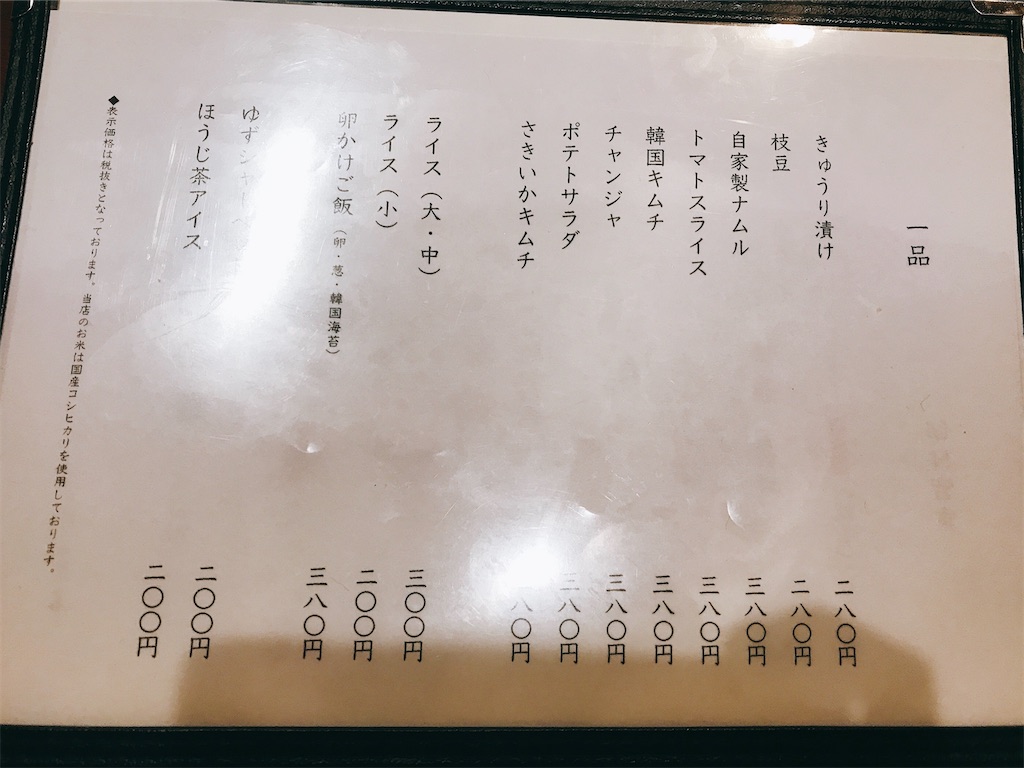 一品
きゅうり漬け 二八〇円
枝豆 二八〇円
自家製ナムル 三八〇円
トマトスライス 三八〇円
韓国キムチ 三八〇円
チャンジャ 三八〇円
ポテトサラダ 三八〇円
さきいかキムチ 八〇円
ライス（大・中） 三〇〇円
ライス（小） 二〇〇円
卵かけご飯（卵・葱・韓国海苔） 三八〇円
ゆずシャーベ 二〇〇円
ほうじ茶アイス 二〇〇円
◆表示価格は税抜きとなっております。当店のお米は国産コシヒカリを使用しております。